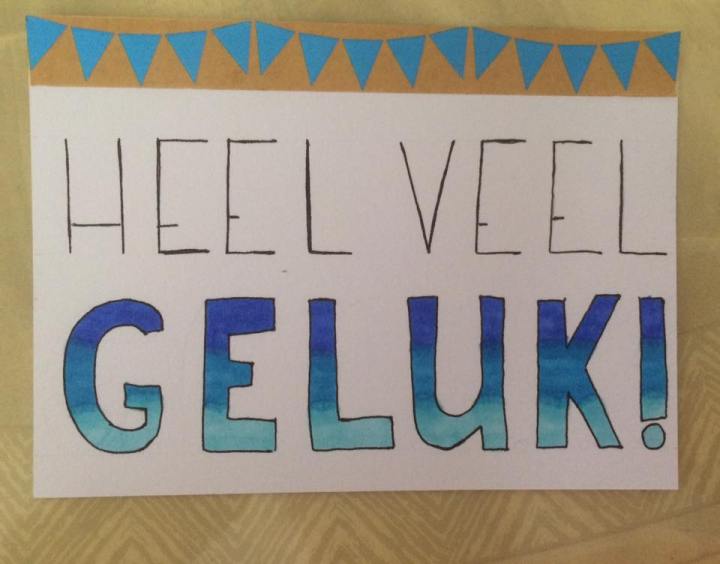 HEEL VEEL
GELUK!